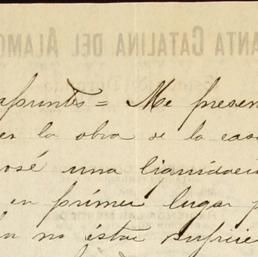 ANTA CATALINA DEL ALAMO
apuntes = Me presen
er la obra de la casa
osé una liquidació
en primer lugar p
no éstar suficie